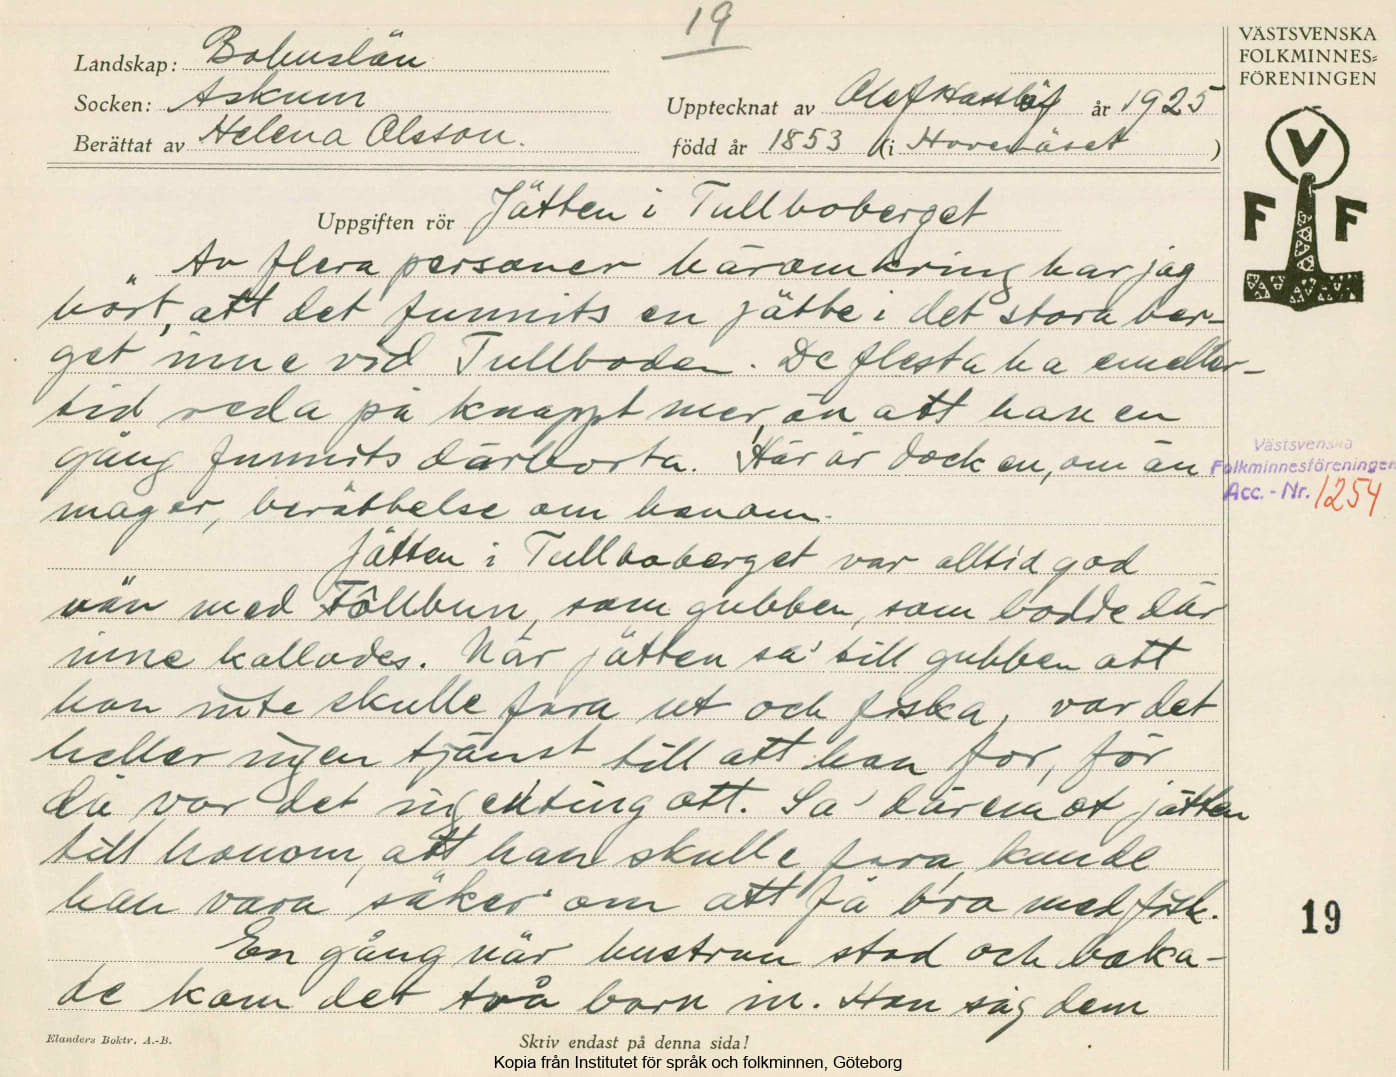 19
Landskap: Bohuslän
Socken: Askum
Upptecknat av Olof Hasslöf år 1925
Berättat av Helena Olsson.
född år 1853 (i Hovenäset)
VÄSTSVENSKA
FOLKMINNES=
FÖRENINGEN
V
F F
Uppgiften rör Jätten i Tullboberget
Av flera personer häromkring har jag
hört, att det funnits en jätte i det stora ber-
get inne vid Tullboden. De flesta ha emeller-
tid reda på knappt mer än att han en
gång funnits därborta. Här är dock en, om än
mager, berättelse om honom.
Västsvenska
Folkminnesföreningen
Acc. - Nr. 1254
Jätten i Tullboberget var alltid god
vän med Föllbun, som gubben, som bodde där
inne kallades. När jätten sa' till gubben att
han inte skulle fara ut och fiska, var det
heller ingen tjänst till att han for, för
då var det ingenting att. Sa' däremot jätten
till honom, att han skulle fara, kunde
han vara säker om att få bra med fisk.
En gång när hustrun stod och baka-
de kom det två barn in. Hon såg dem
19
Elanders Boktr. A.-B.
Skriv endast på denna sida!
Kopia från Institutet för språk och folkminnen, Göteborg